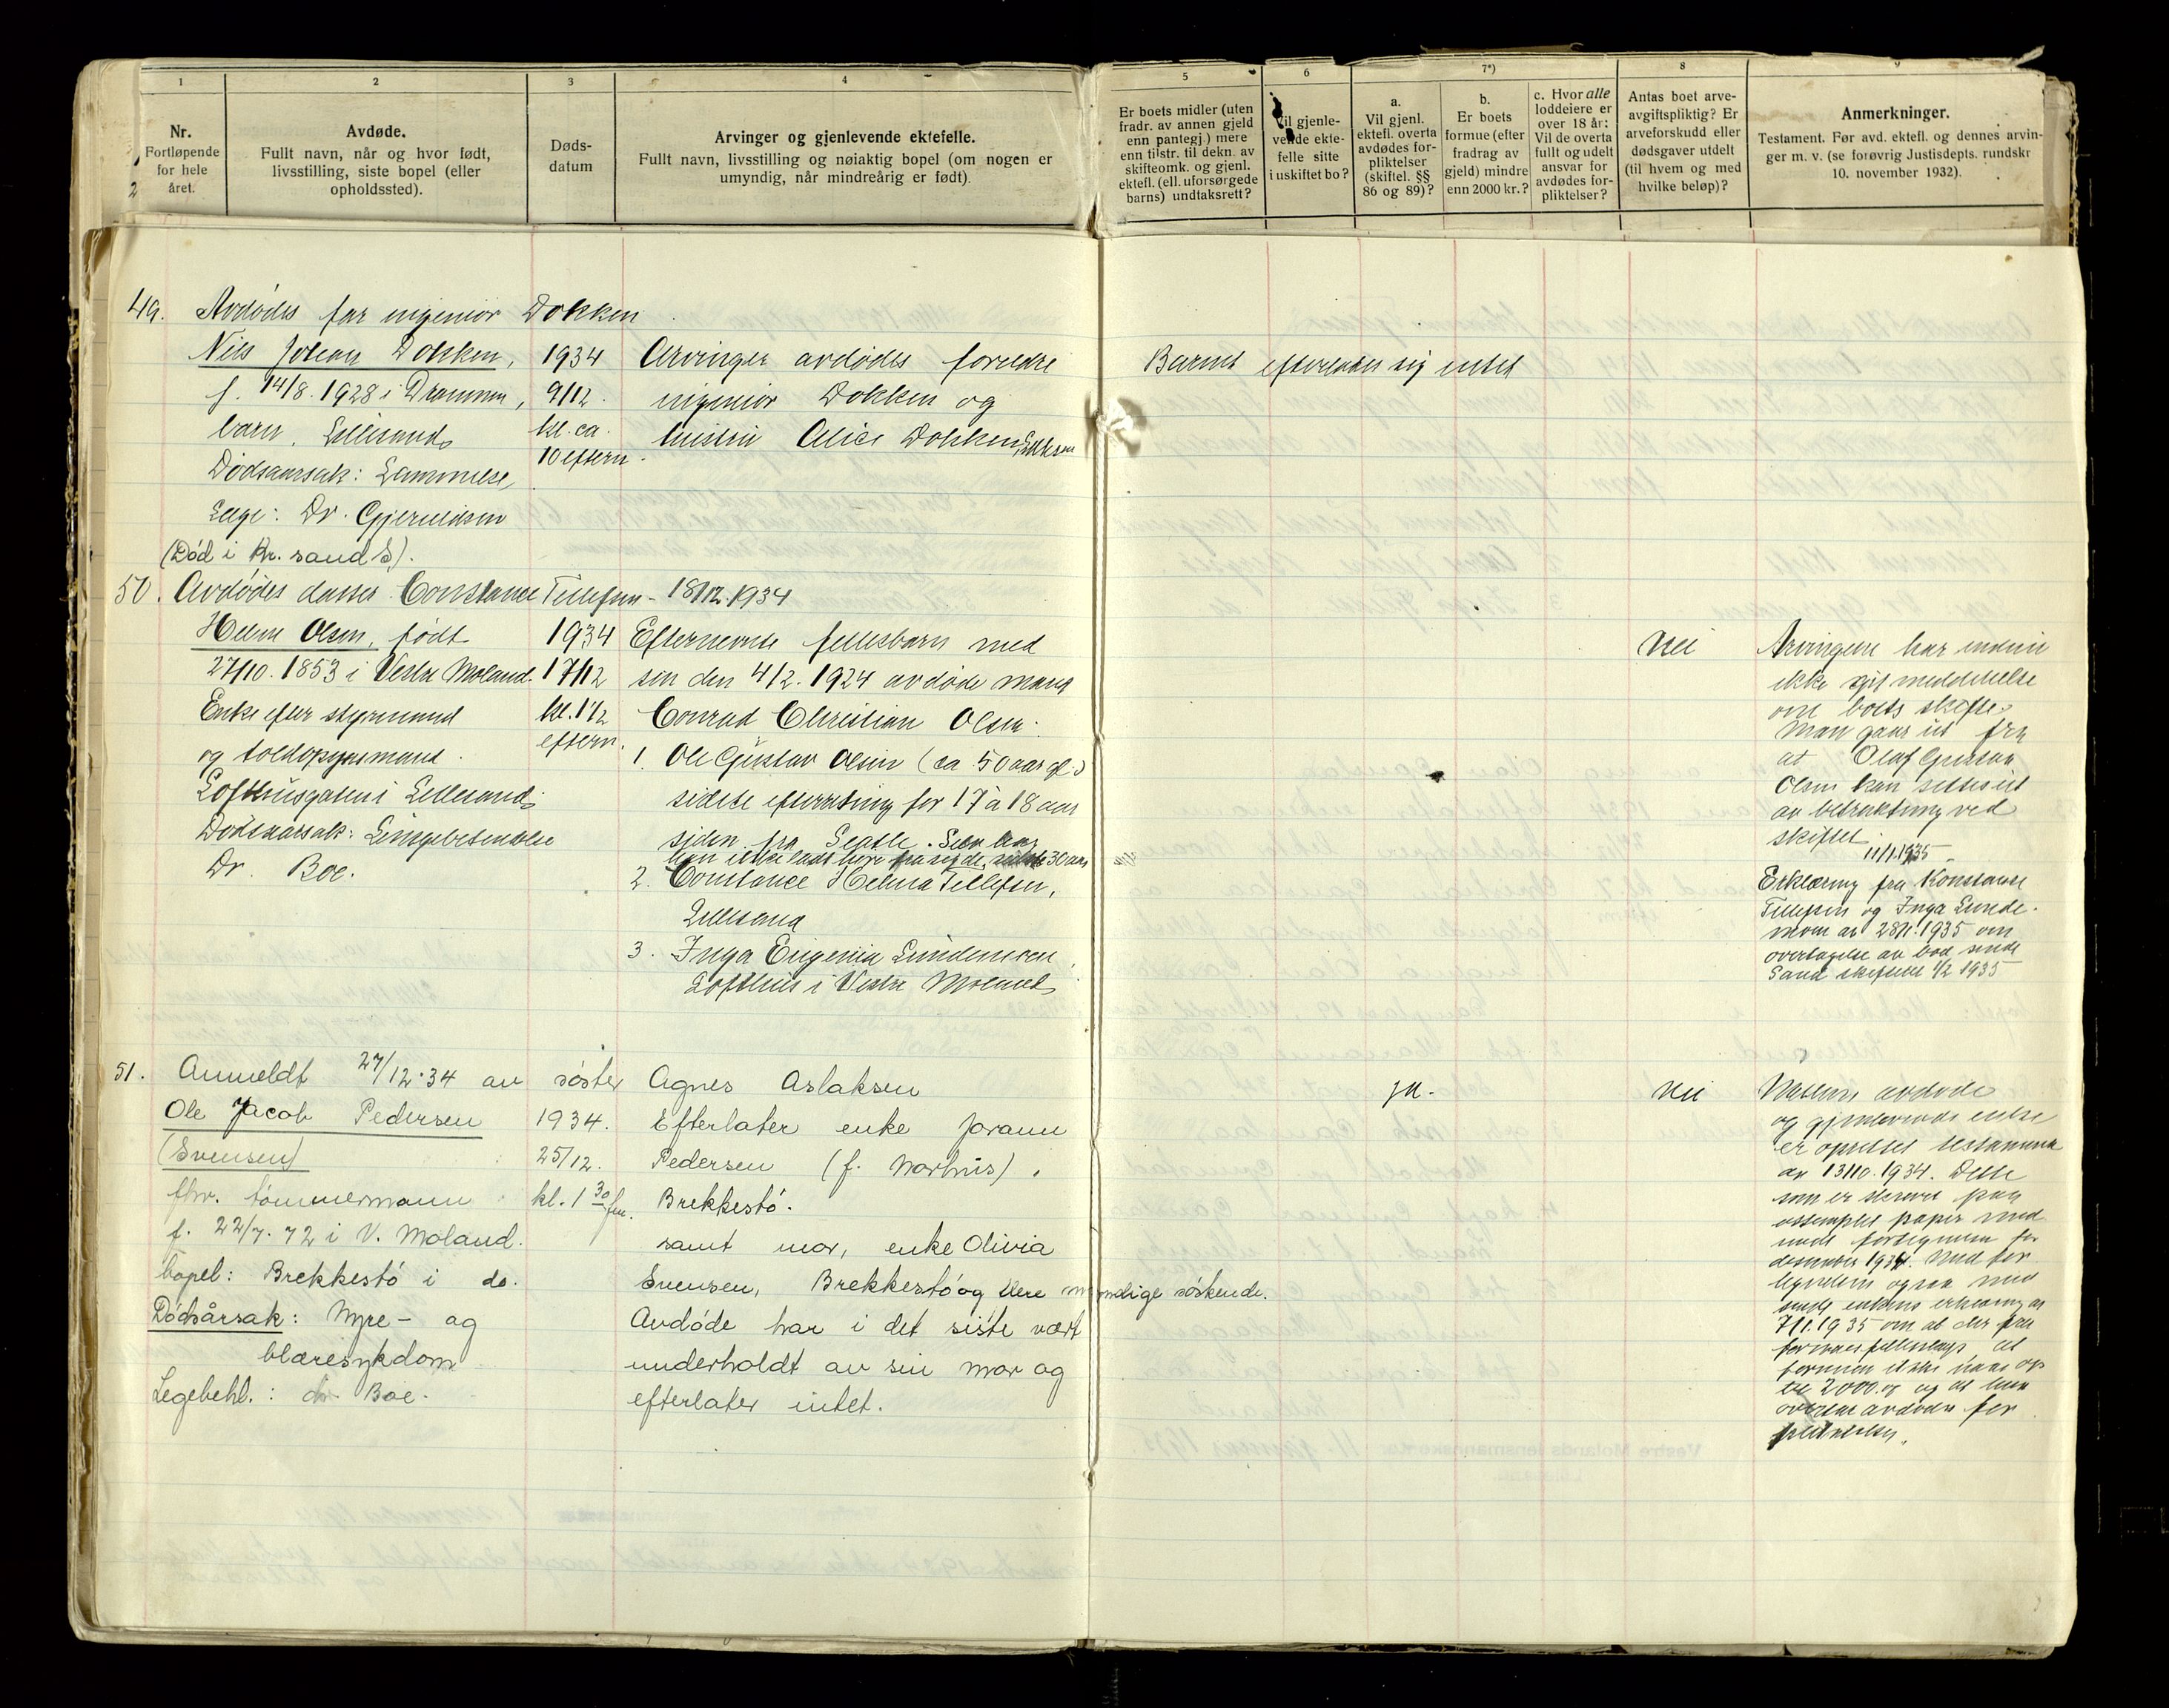 1
Nr.
Fortløpende
for hele
året.
2
Avdøde.
Fullt navn, når og hvor født,
livsstilling, siste bopel (eller
opholdssted).
3
Døds-
datum
4
Arvinger og gjenlevende ektefelle.
Fullt navn, livsstilling og nøiaktig bopel (om nogen er
umyndig, når mindreårig er født).
5
Er boets midler (uten
fradr. av annen gjeld
enn pantegj.) mere
enn tilstr. til dekn. av
skifteomk. og gjenl.
ektefl. (ell. uforsørgede
barns) undtaksrett?
6
Vil gjenle-
vende ekte-
felle sitte
i uskiftet bo?
7*)
a.
Vil gjenl.
ektefl. overta
avdødes for-
pliktelser
(skiftel. §§
86 og 89)?
b.
Er boets
formue (efter
fradrag av
gjeld) mindre
enn 2000 kr.?
c. Hvor alle
loddeiere er
over 18 år:
Vil de overta
fullt og udelt
ansvar for
avdødes for-
pliktelser?
8
Antas boet arve-
avgiftspliktig? Er
arveforskudd eller
dødsgaver utdelt
(til hvem og med
hvilke beløp)?
9
Anmerkninger.
Testament. Før avd. ektefl. og dennes arvin-
ger m. v. (se forøvrig Justisdepts. rundskr
10. november 1932).
49. Avdødes far ingeniør Dokken
Nils Johan Dokken,
f. 14/8. 1928 i Drammen,
barn, Lillesand
Dødsaarsak: Lammelse,
Læge: Dr. Gjeruldsen
(Død i Kr. sand S).
1934
9/12.
kl. ca.
10 eftern.
Arvinger avdødes foreldre
ingeniør Dokken og
hustru Alice Dokken,
Barnet efterlater sig intet
50. Avdødes datter Constance Tellefsen - 18/12. 1934
Helene Olsen, født
27/10. 1853 i Vestre Moland.
Enke efter styrmand
og toldopsynsmand.
Lofthusgaten i Lillesand.
Dødsaarsak: Lungebetendelse
Dr. Boe.
1934
17/12
kl. 1 1/2
eftern.
Efternevnte fellesbarn med
sin den 4/2. 1924 avdøde mand
Conrad Christian Olsen:
1. Ole Gustav Olsen (ca 50 aar gl.)
sidste efterretning for 17 à 18 aar
siden fra Seatle. Selv har
han ikke ladt høre fra sig de sidste 30 aar
2. Constance Helene Tellefsen,
Lillesand
3. Inga Eugenia Lundemoen,
Lofthus i Vestre Moland,
Nei
Arvingene har endnu
ikke git meddelelse
om boets skifte.
Man gaar ut fra
at Olaf Gustav
Olsen kan settes ut
av betraktning ved
skiftet.
11/1. 1935
Erklæring fra Konstanse
Tellefsen og Inga Lunde-
moen av 28/1. 1935 om
overtagelse av bod sendt
Sand skifterett 1/2 1935
51. Anmeldt 27/12.34 av søster Agnes Aslaksen
Ole Jacob Pedersen
(Svensen)
fhv. tømmermann
f. 22/7. 72 i V. Moland.
bopel: Brekkestö i do.
Dödsårsak: Nyre- og
blæresykdom
Legebehl.: dr Boe.
1934.
25/12.
kl. 1 30 fm.
Efterlater enke Jorann
Pedersen (f. Norhus),
Brekkestö.
samt mor, enke Olivia
Svensen, Brekkestö og flere myndige söskende.
Avdöde har i det siste vært
underholdt av sin mor og
efterlater intet.
ja.
Nei
Mellem avdøde
og gjenlevende enke
er oprettet testamente
av 13/10. 1934. Dette
som er skrevet paa
ustemplet papir med
sendt fortegnelsen for
desember 1934. Med for
tegnelsen ogsaa med
sendt enkens erklæring av
7/1. 1935 om at der var
formuesfellesskap at
formuen ikke naar op
til 2000.- og at hun
overtar avdødes for
pliktelser.